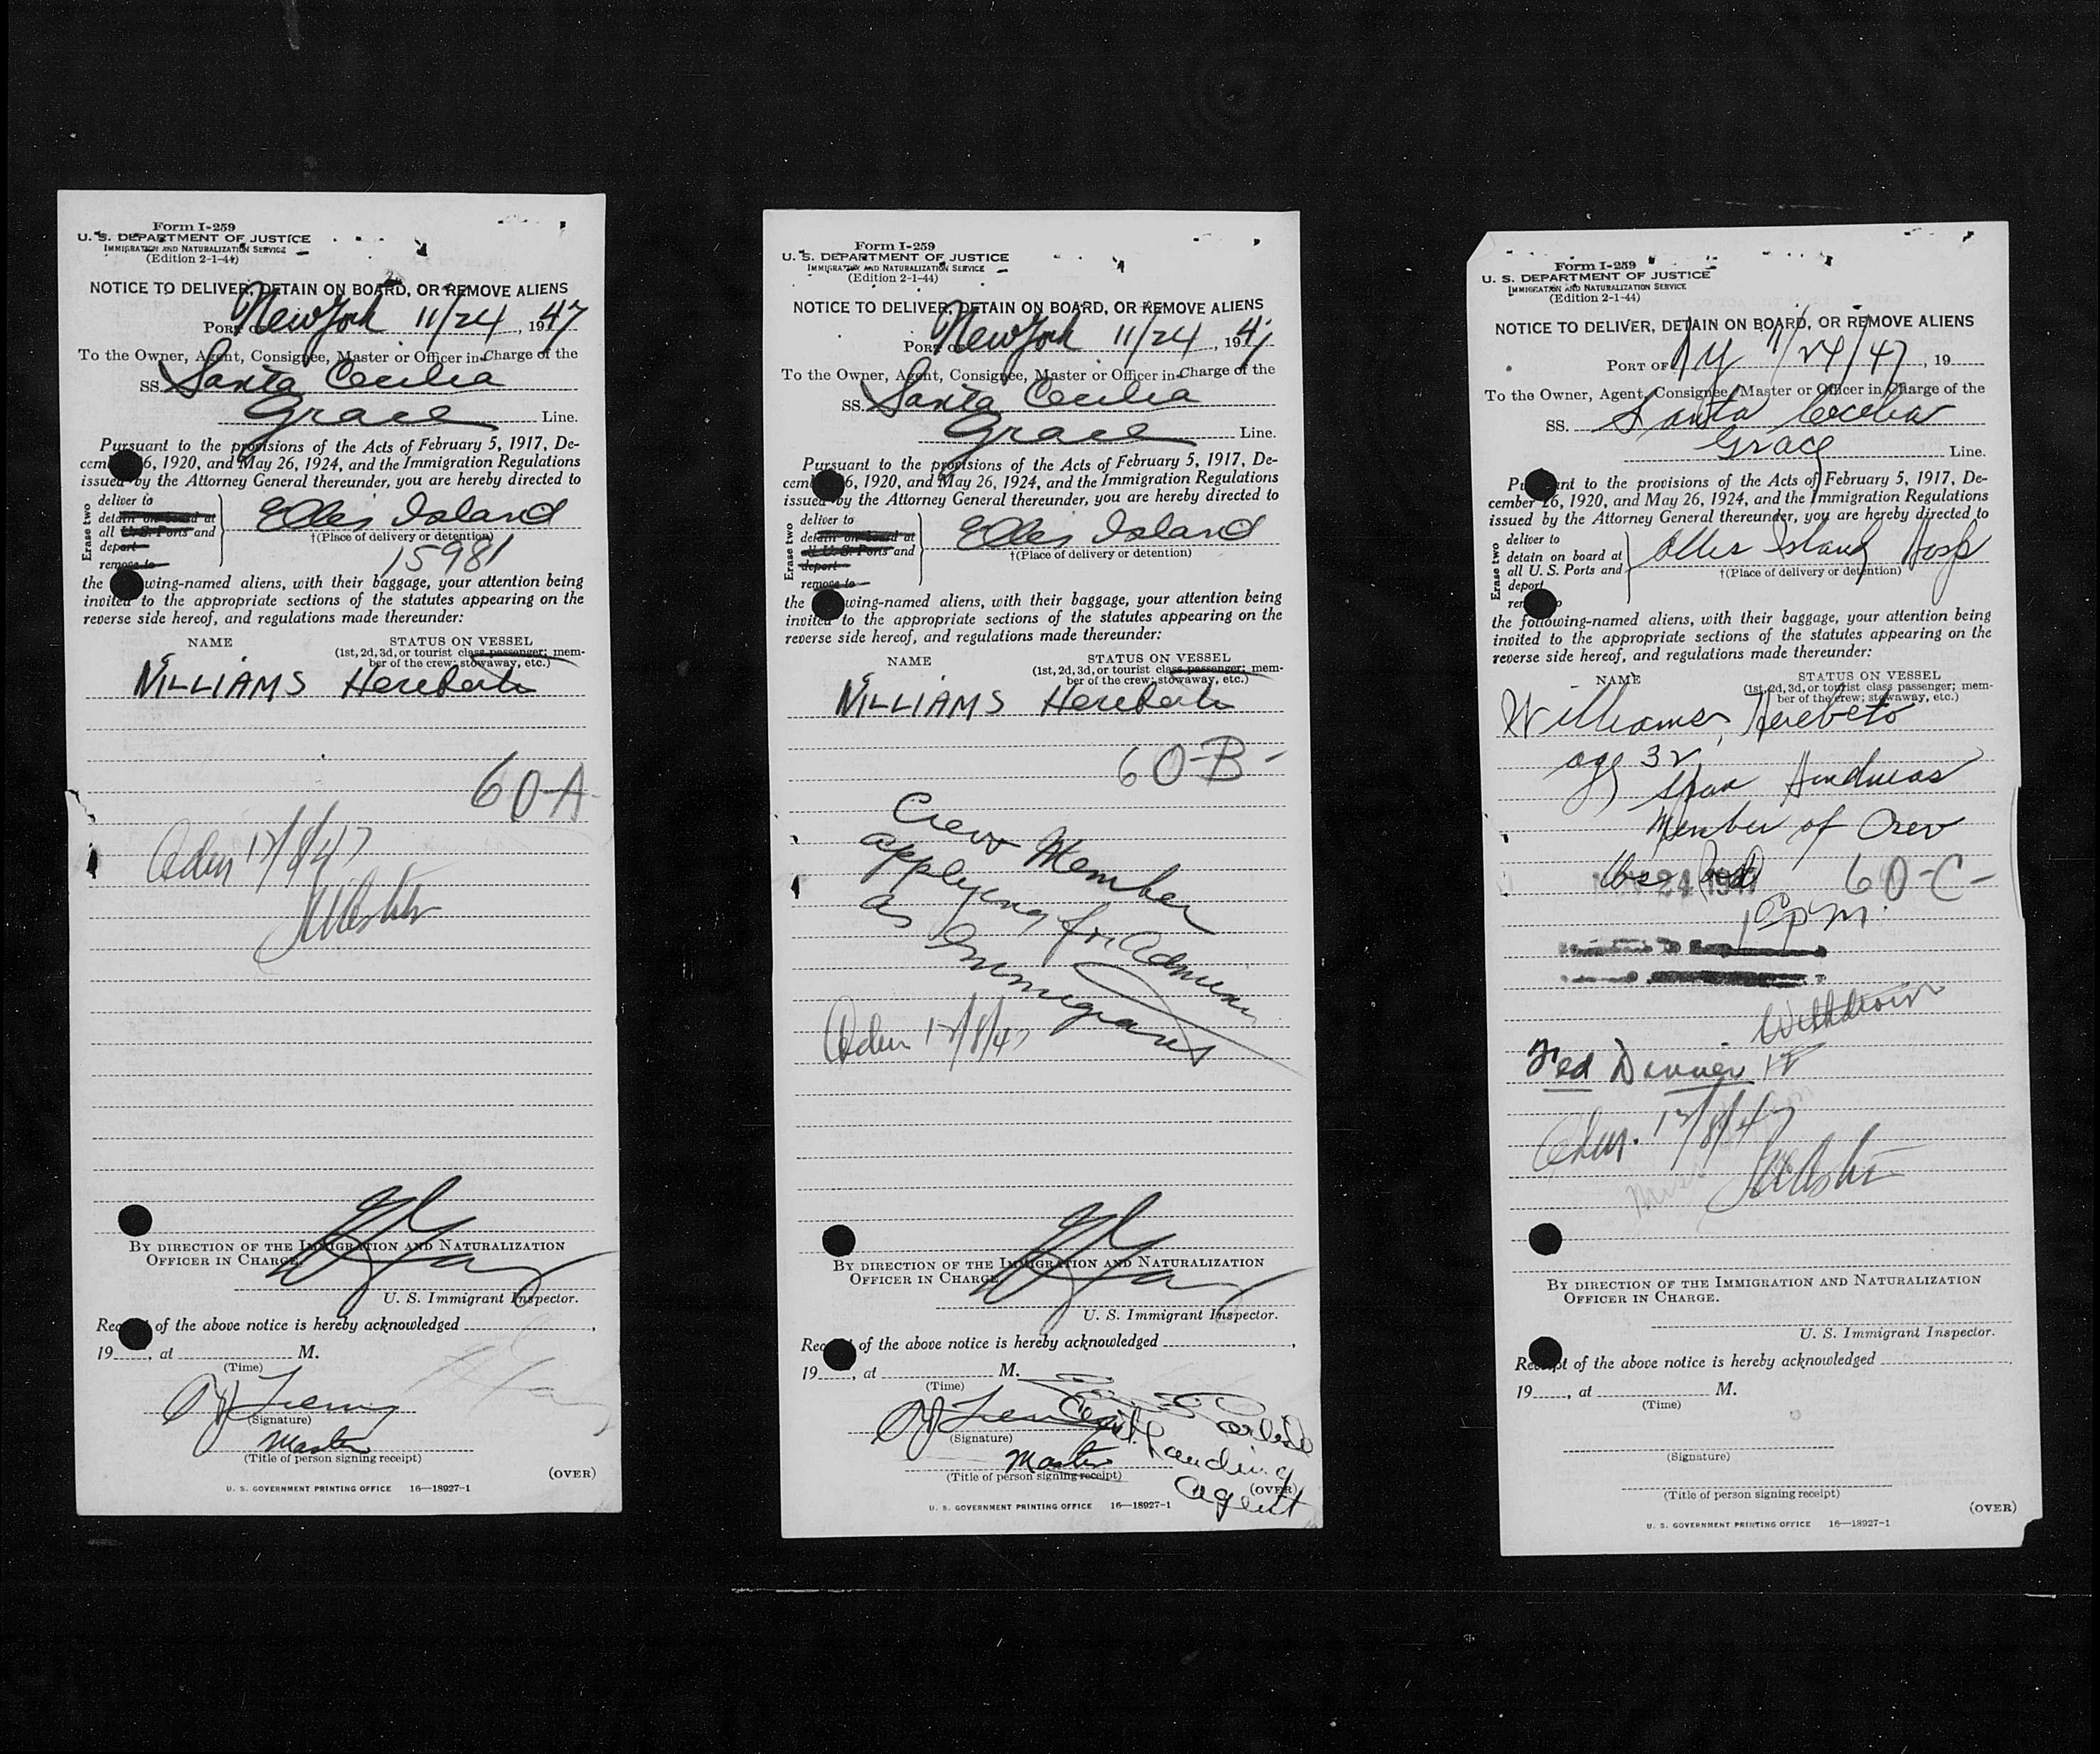 Form I-259
U. S. DEPARTMENT OF JUSTICE
IMMIGRATION AND NATURALIZATION SERVICE
(Edition 2-1-44)
NOTICE TO DELIVER, DETAIN ON BOARD, OR REMOVE ALIENS
PORT OF New York 11/24, 1947
To the Owner, Agent, Consignee, Master or Officer in Charge of the
SS. Santa Cecilia
Grace Line.
Pursuant to the provisions of the Acts of February 5, 1917, De-
cember 26, 1920, and May 26, 1924, and the Immigration Regulations
issued by the Attorney General thereunder, you are hereby directed to
Erase two
deliver to
detain on board at
all U. S. Ports and
deport
remove to
Ellis Island
†(Place of delivery or detention)
15981
the following-named aliens, with their baggage, your attention being
invited to the appropriate sections of the statutes appearing on the
reverse side hereof, and regulations made thereunder:
NAME STATUS ON VESSEL
(1st, 2d, 3d, or tourist class passenger; mem-
ber of the crew; stowaway, etc.)
WILLIAMS Hereberto
60-A
Adm 12/8/47
BY DIRECTION OF THE IMMIGRATION AND NATURALIZATION
OFFICER IN CHARGE.
U. S. Immigrant Inspector.
Receipt of the above notice is hereby acknowledged
19, at M.
(Time)
(Signature)
Master
(Title of person signing receipt)
(OVER)
U. S. GOVERNMENT PRINTING OFFICE 16—18927-1
Form I-259
U. S. DEPARTMENT OF JUSTICE
IMMIGRATION AND NATURALIZATION SERVICE
(Edition 2-1-44)
NOTICE TO DELIVER, DETAIN ON BOARD, OR REMOVE ALIENS
PORT OF New York 11/24, 1947
To the Owner, Agent, Consignee, Master or Officer in Charge of the
SS. Santa Cecilia
Grace Line.
Pursuant to the provisions of the Acts of February 5, 1917, De-
cember 26, 1920, and May 26, 1924, and the Immigration Regulations
issued by the Attorney General thereunder, you are hereby directed to
Erase two
deliver to
detain on board at
all U. S. Ports and
deport
remove to
Ellis Island
†(Place of delivery or detention)
the following-named aliens, with their baggage, your attention being
invited to the appropriate sections of the statutes appearing on the
reverse side hereof, and regulations made thereunder:
NAME STATUS ON VESSEL
(1st, 2d, 3d, or tourist class passenger; mem-
ber of the crew; stowaway, etc.)
WILLIAMS Hereberto
60-B-
Crew Member
applying for Admission
as Immigrant
Adm 12/8/47
BY DIRECTION OF THE IMMIGRATION AND NATURALIZATION
OFFICER IN CHARGE.
U. S. Immigrant Inspector.
Receipt of the above notice is hereby acknowledged
19, at M.
(Time)
(Signature)
Master Landing
(Title of person signing receipt)
(OVER)
Agent
U. S. GOVERNMENT PRINTING OFFICE 16—18927-1
Form I-259
U. S. DEPARTMENT OF JUSTICE
IMMIGRATION AND NATURALIZATION SERVICE
(Edition 2-1-44)
NOTICE TO DELIVER, DETAIN ON BOARD, OR REMOVE ALIENS
PORT OF NY 11/24/47, 19
To the Owner, Agent, Consignee, Master or Officer in Charge of the
SS. Santa Cecelia
Grace Line.
Pursuant to the provisions of the Acts of February 5, 1917, De-
cember 26, 1920, and May 26, 1924, and the Immigration Regulations
issued by the Attorney General thereunder, you are hereby directed to
Erase two
deliver to
detain on board at
all U. S. Ports and
deport
remove to
Ellis Island Hosp
†(Place of delivery or detention)
the following-named aliens, with their baggage, your attention being
invited to the appropriate sections of the statutes appearing on the
reverse side hereof, and regulations made thereunder:
NAME STATUS ON VESSEL
(1st, 2d, 3d, or tourist class passenger; mem-
ber of the crew; stowaway, etc.)
Williams, Herebeto
age 32
Span Honduras
Member of Crew
24 1947 60-C-
pm
Withdrawn
Fed Dinner
Adm. 12/8/47
BY DIRECTION OF THE IMMIGRATION AND NATURALIZATION
OFFICER IN CHARGE.
U. S. Immigrant Inspector.
Receipt of the above notice is hereby acknowledged
19, at M.
(Time)
(Signature)
(Title of person signing receipt)
(OVER)
U. S. GOVERNMENT PRINTING OFFICE 16—18927-1